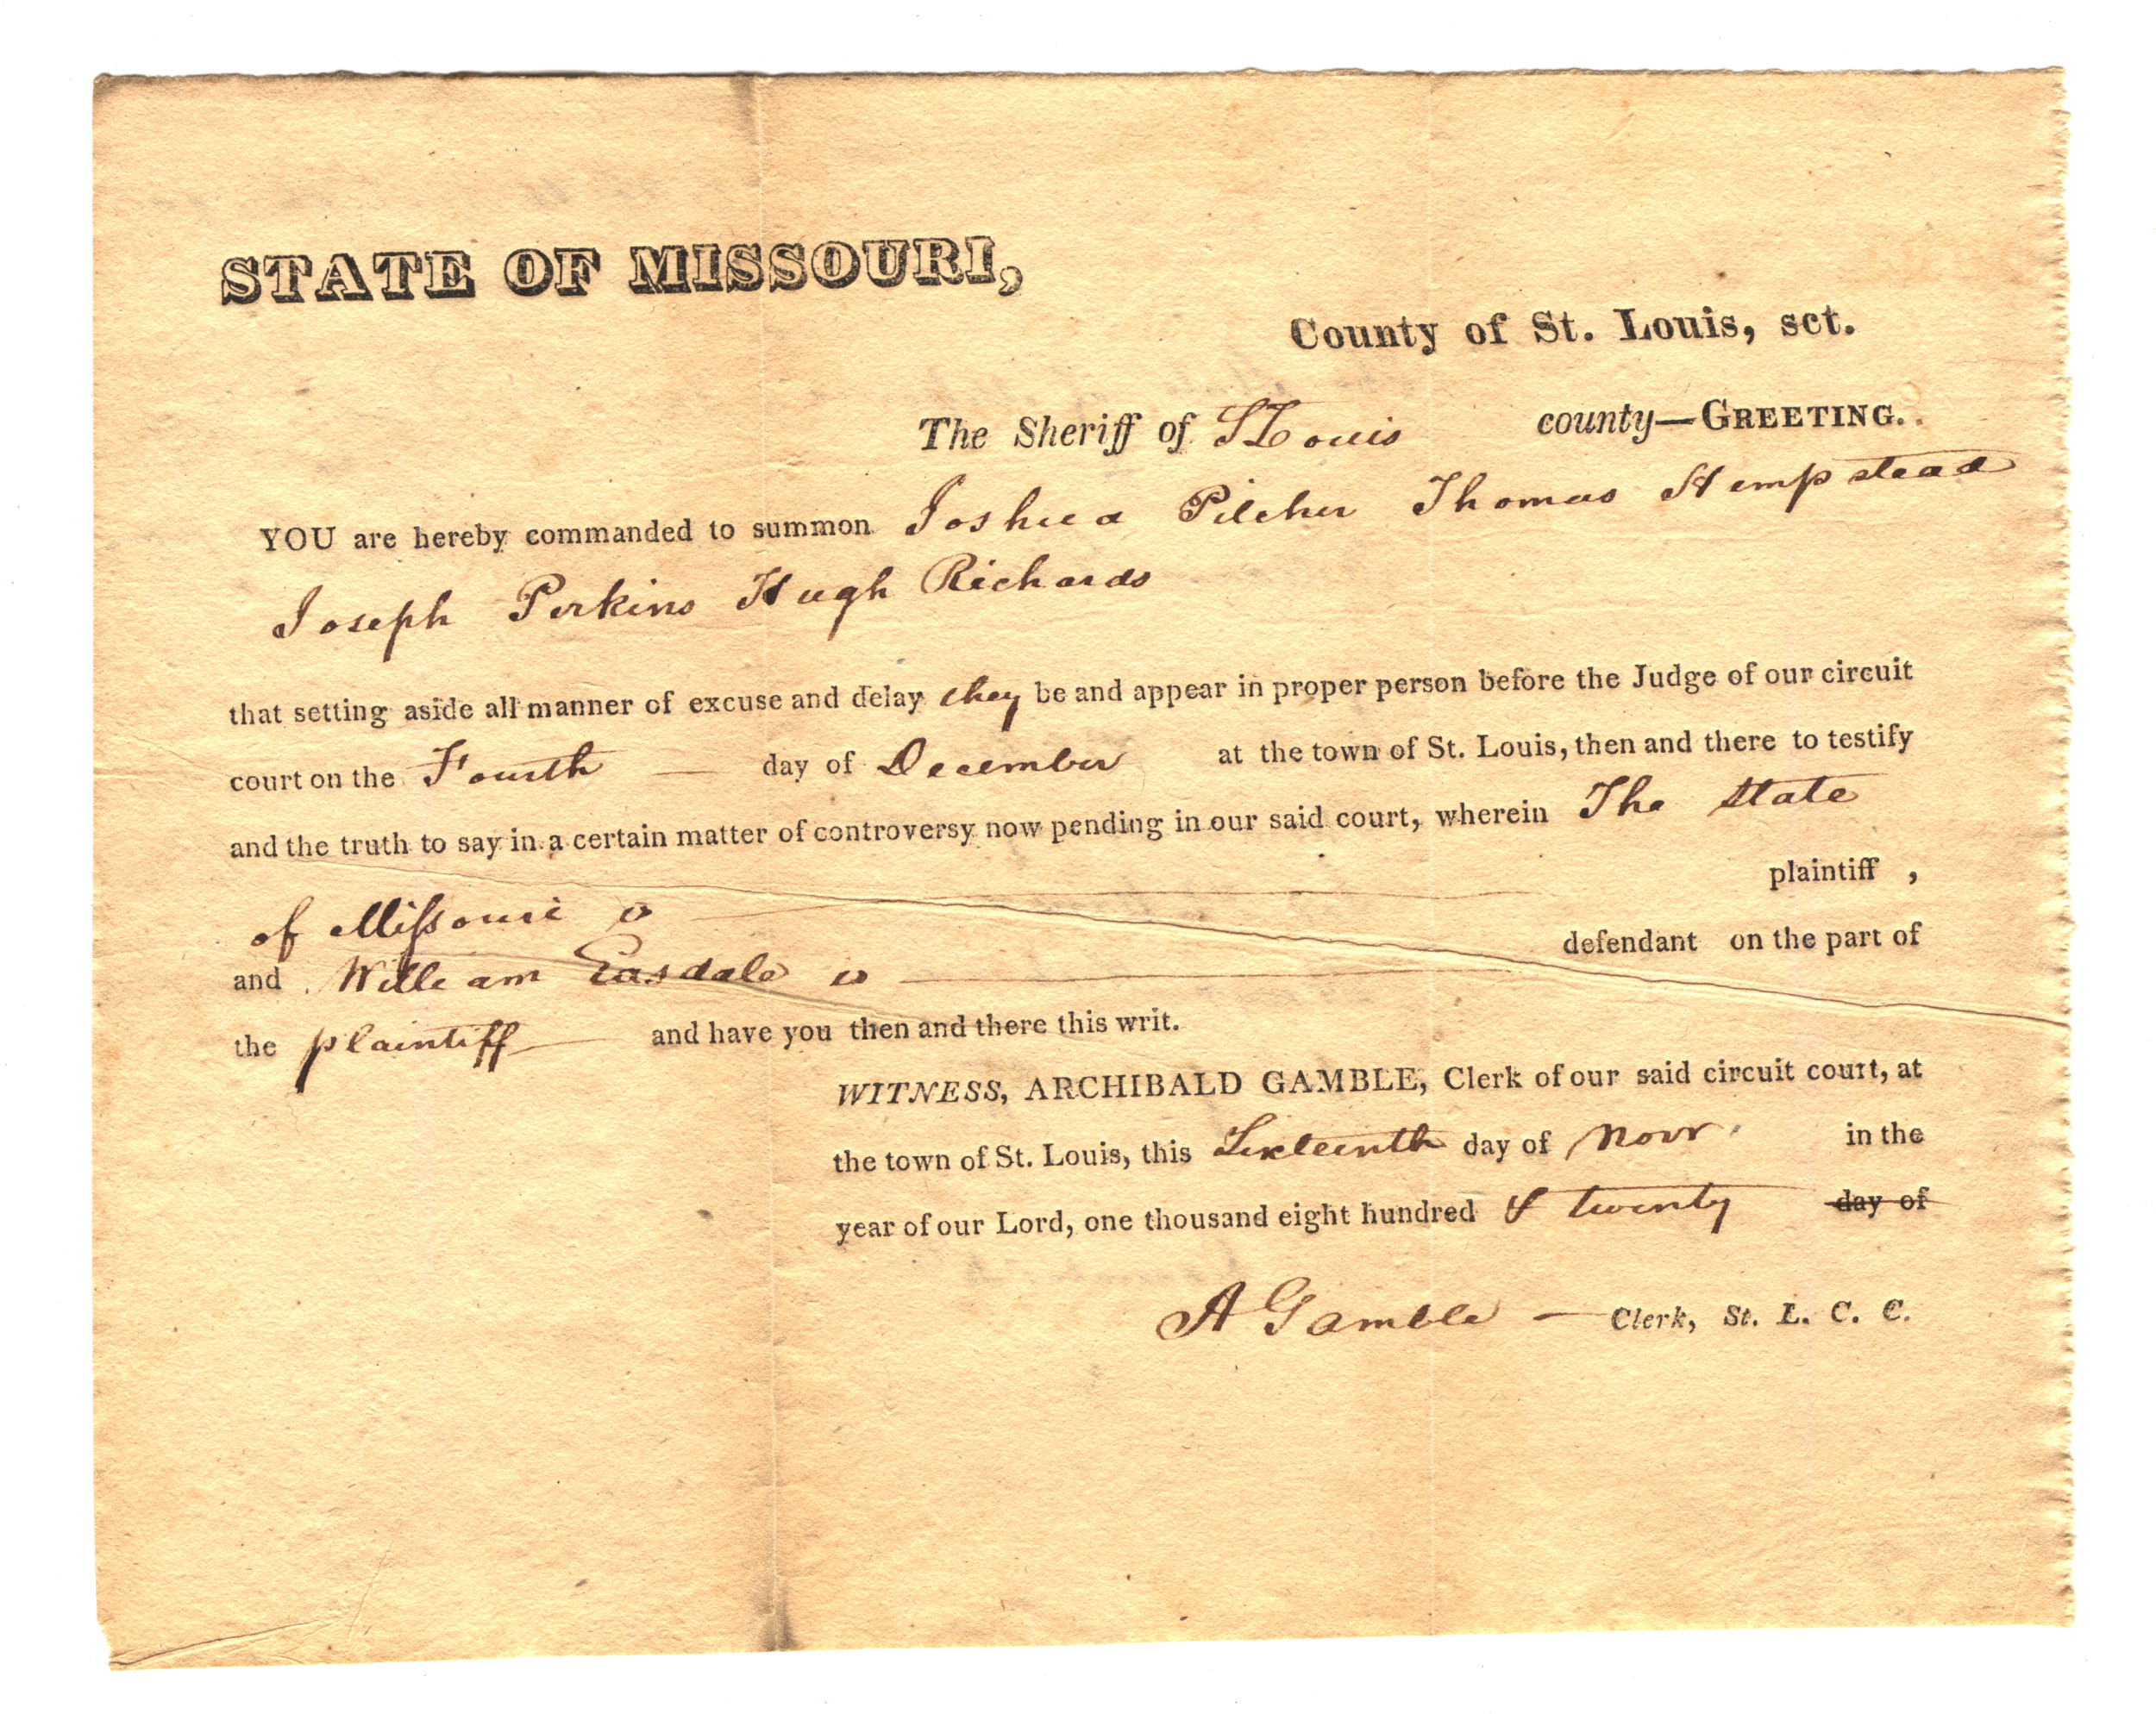 STATE OF MISSOURI,
County of St. Louis, sct.
The Sheriff of St Louis county—GREETING.
YOU are hereby commanded to summon Joshua Pilcher Thomas Hempstead
Joseph Perkins Hugh Richards
that setting aside all manner of excuse and delay they be and appear in proper person before the Judge of our circuit
court on the Fourth — day of December at the town of St. Louis, then and there to testify
and the truth to say in a certain matter of controversy now pending in our said court, wherein The State
of Missouri is — plaintiff ,
and William Easdale is — defendant on the part of
the plaintiff — and have you then and there this writ.
WITNESS, ARCHIBALD GAMBLE, Clerk of our said circuit court, at
the town of St. Louis, this Sixteenth day of Novr. in the
year of our Lord, one thousand eight hundred & twenty day of
A Gamble — Clerk, St. L. C. C.